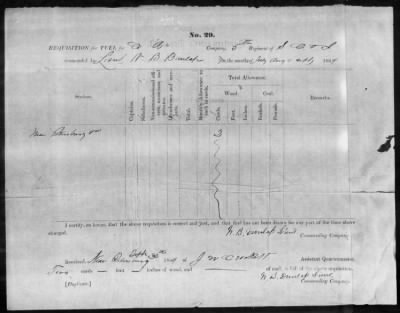 No. 29.
REQUISITION FOR FUEL for "D" Co Company, 5th Regiment of S C V S
commanded by Lieut W. B. Dunlap for the months July Aug & Sept 1864
Station.
Captain.
Subalterns.
Total.
Monthly allowance in cords.
Total Allowance.
Wood.
Coal.
Cords.
Feet.
Inches.
Bushels.
Pecks.
Remarks.
Near Petersburg Va
2
I certify, on honor, that the above requisition is correct and just, and that fuel has not been drawn for any part of the time above
charged.
W. B. Dunlap Lieut
Commanding Company.
Received, Near Petersburg Sept 30th 1864 of J W Assistant Quartermaster,
Two cords — feet inches of wood, and of coal, in full of the above requisition.
W. B. Dunlap Lieut
[Duplicate.]
Commanding Company.